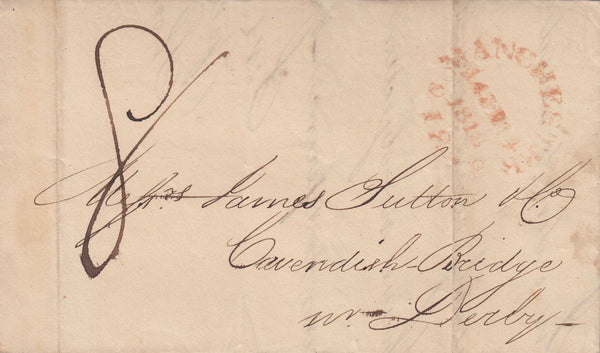 8
MANCHESTER
Messrs. James Sutton & Co.
Cavendish-Bridge
nr. Derby-